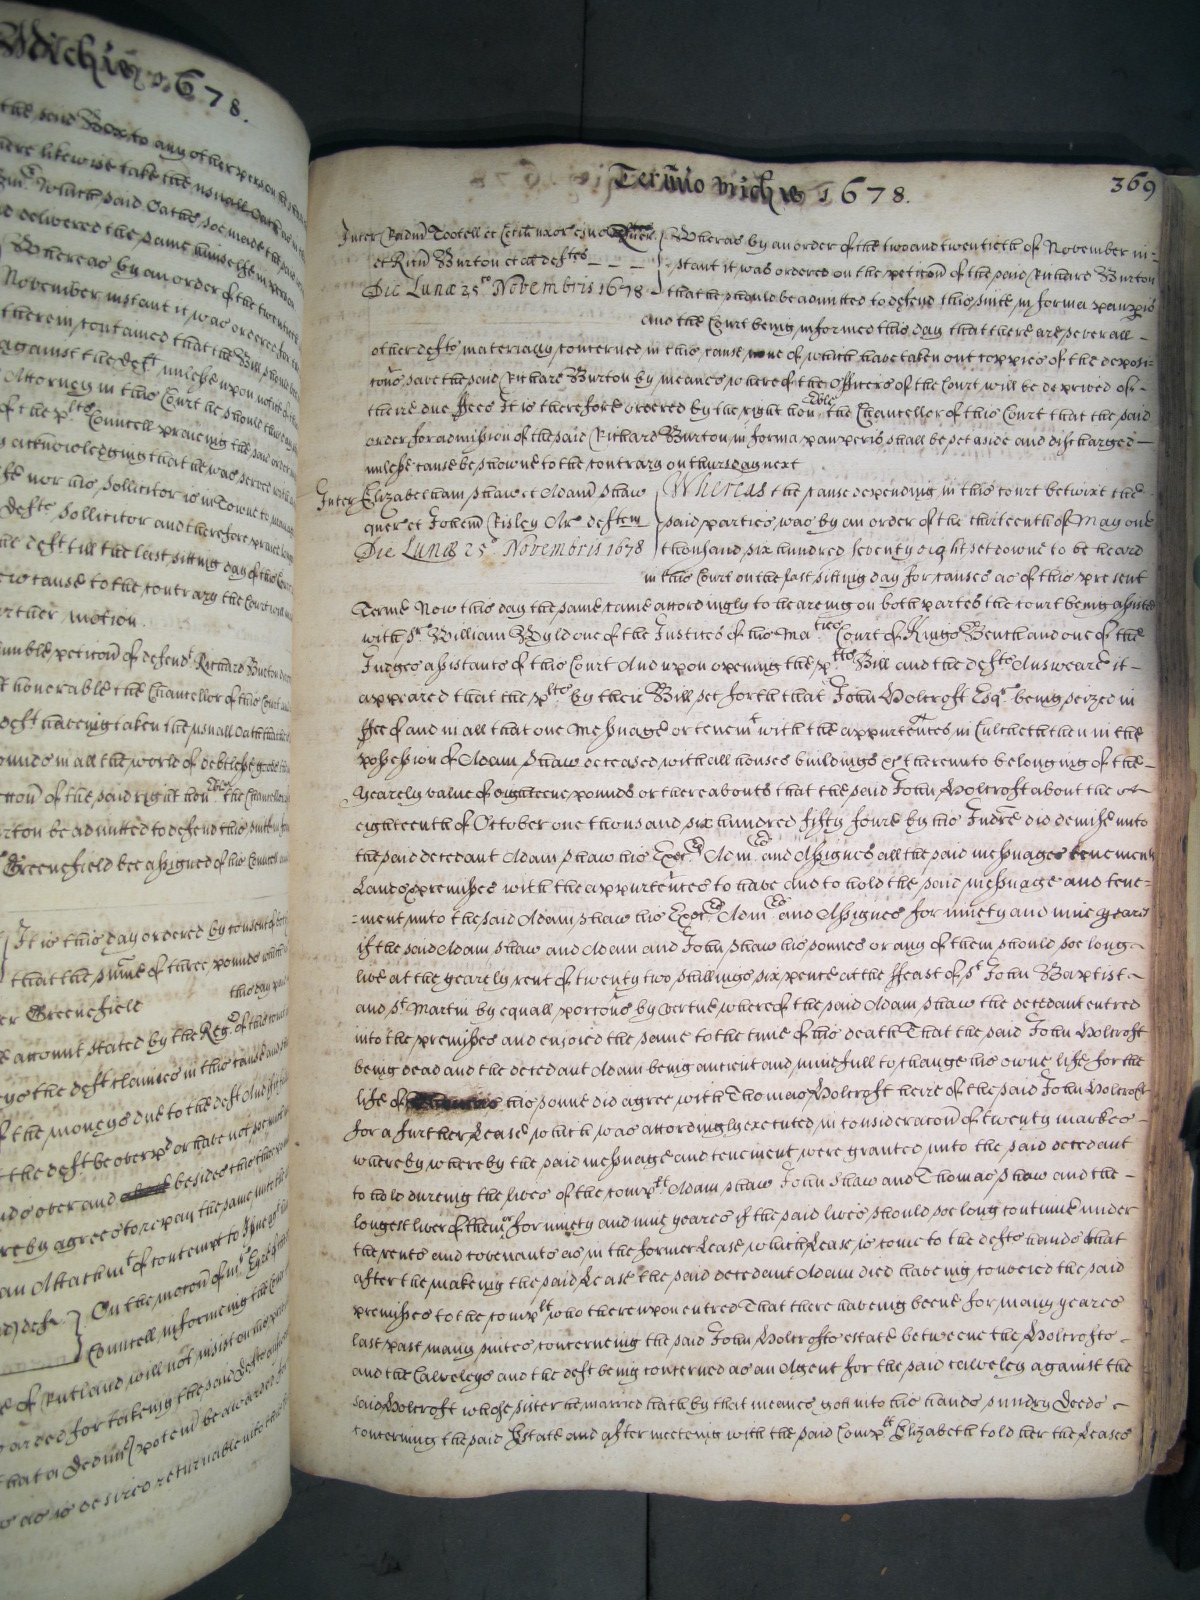 Michis 1678.
the said Box to any other person
here likewise take the usuall Oath
Which said Oathes soe made the said
delivered the same himselfe in person
Whereas by an order of the twentieth
November instant it was ordered
therein contained that the Bill should
against the deft unlesse upon notice
Attorney in this Court he should
of the plts Councell praieing the said order
acknowledging that he was served
nor his Sollicitor is in Towne to
defts Sollicitor and therefore praied
the deft till the last sitting day of this Court
cause to the contrary the Court will
further motion.
humble peticon of defendt Richard Burton
honorable the Chancellor of this Court
deft haveing taken the usuall Oath that he
pounds in all the world of debtlesse goods
of the said right honble the Chancellor
Burton be admitted to defend this suite in
Greenefield bee assigned of his Councell
It is this day ordered by consent of
that the sume of three pounds which
Greenefield this day
account stated by the Regr of this Court
the deft claimes in this cause and
the moneys due to the deft And if
the deft be overpd or have not
over and besides the
hereby agrees to repay the same unto the
an Attachmt of contempt to issue
deft } On the motion of mr
Councell informeing the Court
of Rutland will not insist on his
for takeing the said defts answere
that a Dedimus potem be awarded
as is desired returnable into this
Termio michis 1678. 369
Inter Radm Tootell et uxor ejus Quer. } Whereas by an order of the two and twentieth of November in=
et Ricm Burton et al defts - - - } stant it was ordered on the peticon of the said Richard Burton
Die Lunæ 25o Novembris 1678 } that he should be admitted to defend this suite in forma pauperis
and the Court being informed this day that there are severall -
other defts materially concerned in this cause none of which have taken out coppies of the deposi=
cons save the said Richard Burton by meanes whereof the Officers of the Court will be deprived of -
theire due ffees It is therefore ordered by the right honble the Chancellor of this Court that the said
order for admission of the said Richard Burton in forma pauperis shall be set aside and discharged -
unlesse cause be showne to the contrary on thursday next
Inter Elizabetham Shaw et Adam Shaw } Whereas the cause depending in this court betwixt the
quer et Johem Risley Ar. deftem } said parties was by an order of the thirteenth of May one
Die Lunæ 25o Novembris 1678 } thousand six hundred seventy eight set downe to be heard
in this Court on the last sitting day for causes as of this present
Terme Now this day the same came accordingly to heareing on both partes the court being assisted
with Sr William Wyld one of the Justices of his Maties Court of Kings Bench and one of the
Judges assistants of this Court And upon opening the plts Bill and the defts Answeare it -
appeared that the plts by their Bill set forth that John Holcroft Esqr being seized in
ffee of and in all that one Messuage or tenemt with the appurtences in Culcheth then in the
possession of Adam Shaw deceased with all houses buildings &c thereunto belonging of the -
yearely value of eighteene pounds or thereabouts that the said John Holcroft about the
eighteenth of October one thousand six hundred fifty foure by his Indre did demise unto
the said decedant Adam Shaw his Exors Adm and Assignes all the said messuages tenement
Lands premisses with the appurtences to have And to hold the said messuage and tene=
=ment unto the said Adam Shaw his Exors Adm and Assignes for ninety and nine yeares
if the said Adam Shaw and Adam and John Shaw his sonnes or any of them should soe long -
live at the yearely rent of twenty two shillings six pence at the ffeast of St John Baptist -
and St Martin by equall porcons by vertue whereof the said Adam Shaw the decedant entred
into the premisses and enjoied the same to the time of his death That the said John Holcroft
being dead and the decedant Adam being ancient and mindfull to change his owne life for the
life of his sonne did agree with Thomas Holcroft heire of the said John Holcroft
for a further Lease which was accordingly executed in consideracon of twenty markes -
whereby whereby the said messuage and tenement were granted unto the said decedant
to hold dureing the lives of the complt Adam Shaw John Shaw and Thomas Shaw and the -
longest liver of them or for ninety and nine yeares if the said lives should soe long continue under
the rents and covenants as in the former Lease which Lease is come to the defts hands that
after the makeing the said Lease the said decedant Adam died haveing conveied the said
premisses to the complt who thereupon entred That there haveing beene for many yeares
last past many suites concerneing the said John Holcrofts estate betweene the Holcrofts -
and the Calveleys and the deft being concerned as an Agent for the said Calveley against the
said Holcroft whose sister he married hath by that meanes gott into his hands sundry deeds -
concerning the said Estate and after meeteing with the said complt Elizabeth told her the Leases